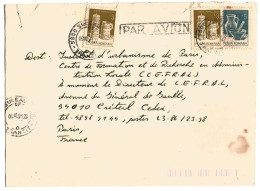 PAR AVION
Dest. Institut d'urbanisme de Paris,
Centre de Formation et de Recherche en Adminis-
tration Locale (C.E.F.R.A.L)
A monsieur le Directeur de C.E.F.R.A.L,
Avenue du Général de Gaulle,
94010 Créteil Cedex,
Paris,
France